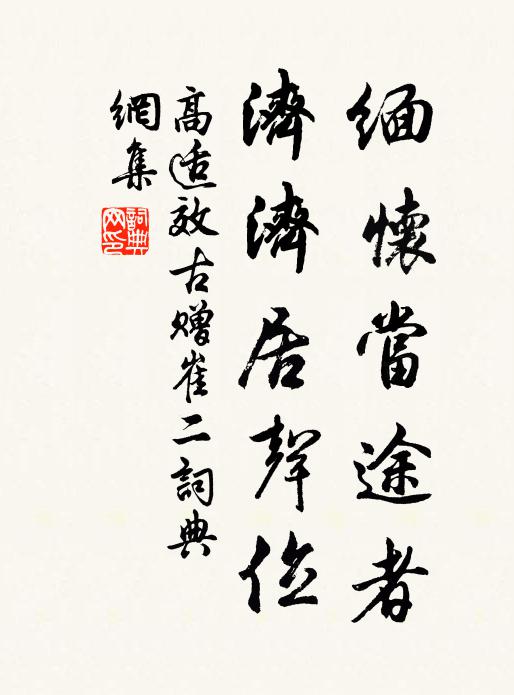 緬懷當途者
濟濟居聲位
高适效古赠崔二詞典
網集
詞典
网印